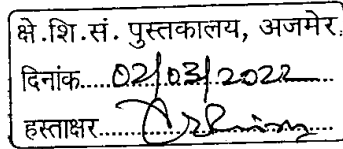 क्षे.शि.सं. पुस्तकालय, अजमेर.
दिनांक.....02/03/2022
हस्ताक्षर.....